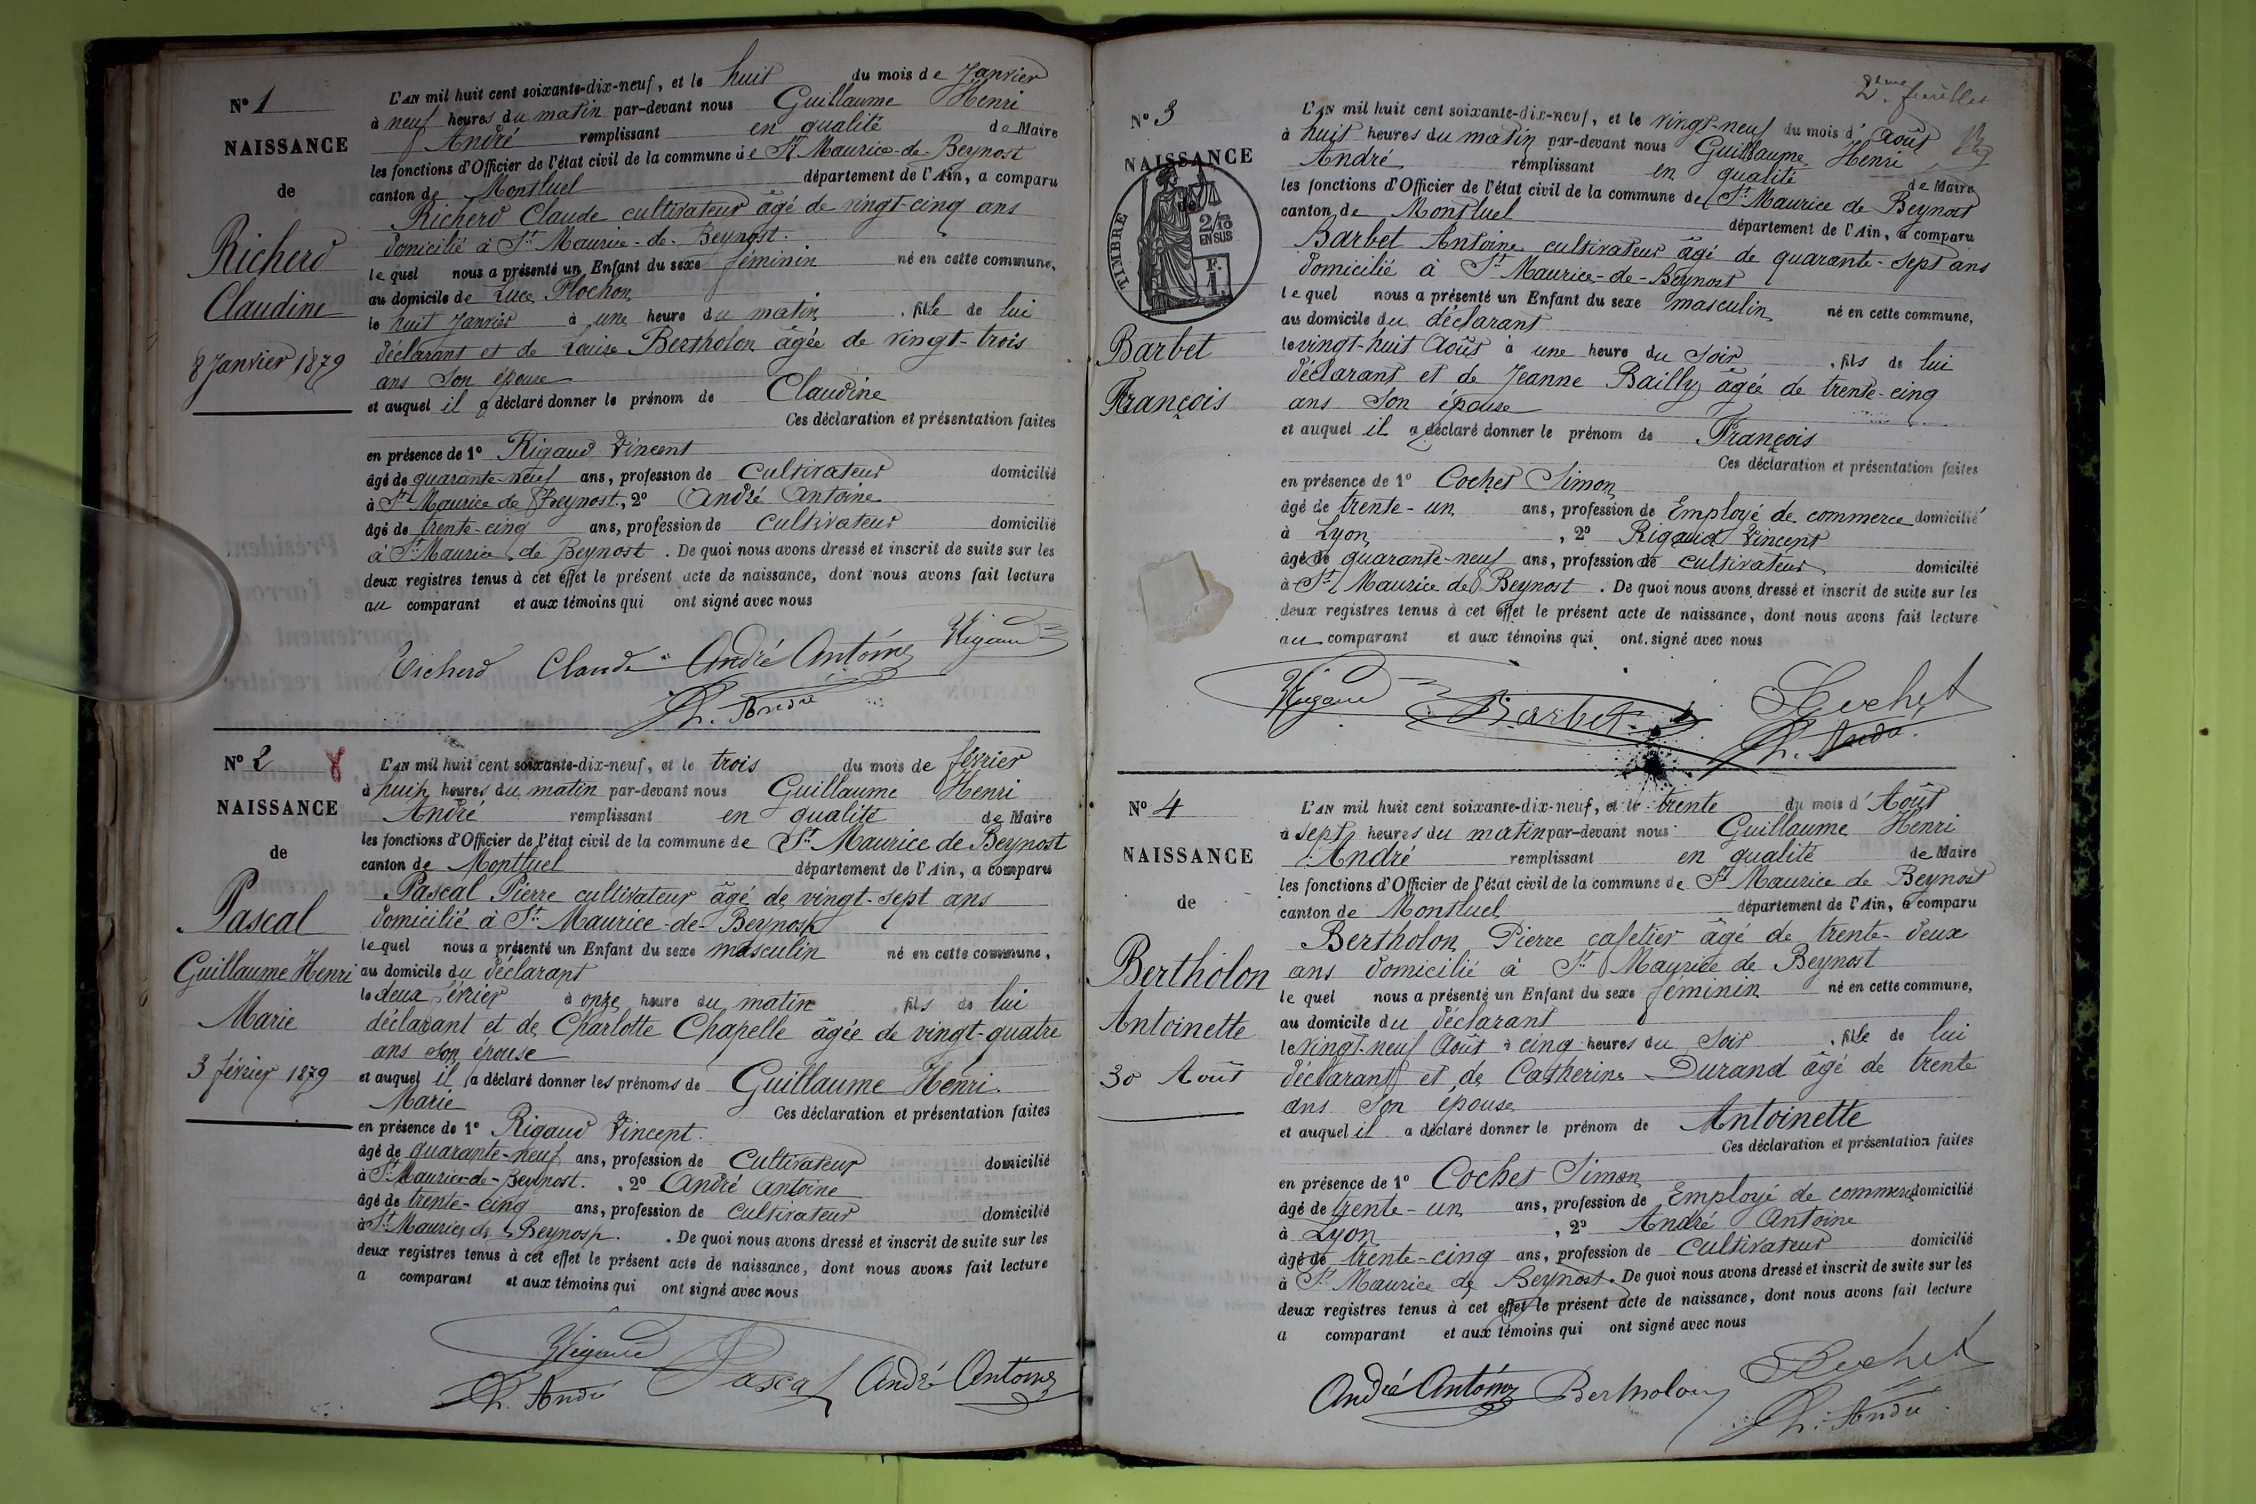 N° 1
NAISSANCE
de
Richerd
Claudine
8 Janvier 1879
L'AN mil huit cent soixante-dix-neuf, et le huit du mois de Janvier
à neuf heures du matin par-devant nous Guillaume Henri
André remplissant en qualité de Maire
les fonctions d'Officier de l'état civil de la commune de St Maurice-de-Beynost
canton de Montluel département de l'Ain, a comparu
Richerd Claude cultivateur âgé de vingt-cinq ans
domicilié à St Maurice-de-Beynost.
le quel nous a présenté un Enfant du sexe féminin né en cette commune,
au domicile de Luce Plochon
le huit Janvier à une heure du matin, fille de lui
déclarant et de Louise Bertholon âgée de vingt-trois
ans son épouse
et auquel il a déclaré donner le prénom de Claudine
Ces déclaration et présentation faites
en présence de 1° Rigaud Vincent
âgé de quarante-neuf ans, profession de Cultivateur domicilié
à St Maurice de Beynost, 2° André Antoine
âgé de trente-cinq ans, profession de Cultivateur domicilié
à St Maurice de Beynost. De quoi nous avons dressé et inscrit de suite sur les
deux registres tenus à cet effet le présent acte de naissance, dont nous avons fait lecture
au comparant et aux témoins qui ont signé avec nous
Richerd Claude André Antoine Rigaud
h. André
N° 2 8
NAISSANCE
de
Pascal
Guillaume Henri
Marie
3 février 1879
L'AN mil huit cent soixante-dix-neuf, et le trois du mois de février
à huit heures du matin par-devant nous Guillaume Henri
André remplissant en qualité de Maire
les fonctions d'Officier de l'état civil de la commune de St Maurice de Beynost
canton de Montluel département de l'Ain, a comparu
Pascal Pierre cultivateur âgé de vingt-sept ans
domicilié à St Maurice-de-Beynost
le quel nous a présenté un Enfant du sexe masculin né en cette commune,
au domicile du déclarant
le deux février à onze heure du matin, fils de lui
déclarant et de Charlotte Chapelle âgée de vingt-quatre
ans son épouse
et auquel il a déclaré donner les prénoms de Guillaume Henri
Marie
Ces déclaration et présentation faites
en présence de 1° Rigaud Vincent.
âgé de quarante-neuf ans, profession de Cultivateur domicilié
à St Maurice-de-Beynost. , 2° André Antoine
âgé de trente-cinq ans, profession de Cultivateur domicilié
à St Maurice de Beynost. De quoi nous avons dressé et inscrit de suite sur les
deux registres tenus à cet effet le présent acte de naissance, dont nous avons fait lecture
a comparant et aux témoins qui ont signé avec nous
Rigaud
h. André Pascal André Antoine
2ème feuillet
N° 3
NAISSANCE
de
TIMBRE
2/10
EN SUS
F.
1.
Barbet
François
L'AN mil huit cent soixante-dix-neuf, et le vingt-neuf du mois d'Août
à huit heures du matin par-devant nous Guillaume Henri
André remplissant en qualité de Maire
les fonctions d'Officier de l'état civil de la commune de St Maurice de Beynost
canton de Montluel département de l'Ain, a comparu
Barbet Antoine cultivateur âgé de quarante-sept ans
domicilié à St Maurice-de-Beynost
le quel nous a présenté un Enfant du sexe masculin né en cette commune,
au domicile du déclarant
le vingt-huit Août à une heure du soir, fils de lui
déclarant et de Jeanne Bailly âgée de trente-cinq
ans son épouse
et auquel il a déclaré donner le prénom de François
Ces déclaration et présentation faites
en présence de 1° Cochet Simon
âgé de trente-un ans, profession de Employé de commerce domicilié
à Lyon, 2° Rigaud Vincent
âgé de quarante-neuf ans, profession de cultivateur domicilié
à St Maurice de Beynost. De quoi nous avons dressé et inscrit de suite sur les
deux registres tenus à cet effet le présent acte de naissance, dont nous avons fait lecture
au comparant et aux témoins qui ont signé avec nous
Rigaud Barbet S Cochet
h. André
N° 4
NAISSANCE
de
Bertholon
Antoinette
30 Août
L'AN mil huit cent soixante-dix-neuf, et le trente du mois d'Août
à sept heures du matin par-devant nous Guillaume Henri
André remplissant en qualité de Maire
les fonctions d'Officier de l'état civil de la commune de St Maurice de Beynost
canton de Montluel département de l'Ain, a comparu
Bertholon Pierre cafetier âgé de trente-deux
ans domicilié à St Maurice de Beynost
le quel nous a présenté un Enfant du sexe féminin né en cette commune,
au domicile du déclarant
le vingt-neuf Août à cinq heures du soir, fille de lui
déclarant et de Catherine Durand âgé de trente
ans son épouse
et auquel il a déclaré donner le prénom de Antoinette
Ces déclaration et présentation faites
en présence de 1° Cochet Simon
âgé de trente-un ans, profession de Employé de commerce domicilié
à Lyon, 2° André Antoine
âgé de trente-cinq ans, profession de Cultivateur domicilié
à St Maurice de Beynost. De quoi nous avons dressé et inscrit de suite sur les
deux registres tenus à cet effet le présent acte de naissance, dont nous avons fait lecture
a comparant et aux témoins qui ont signé avec nous
André Antoine Bertholon S Cochet
h. André